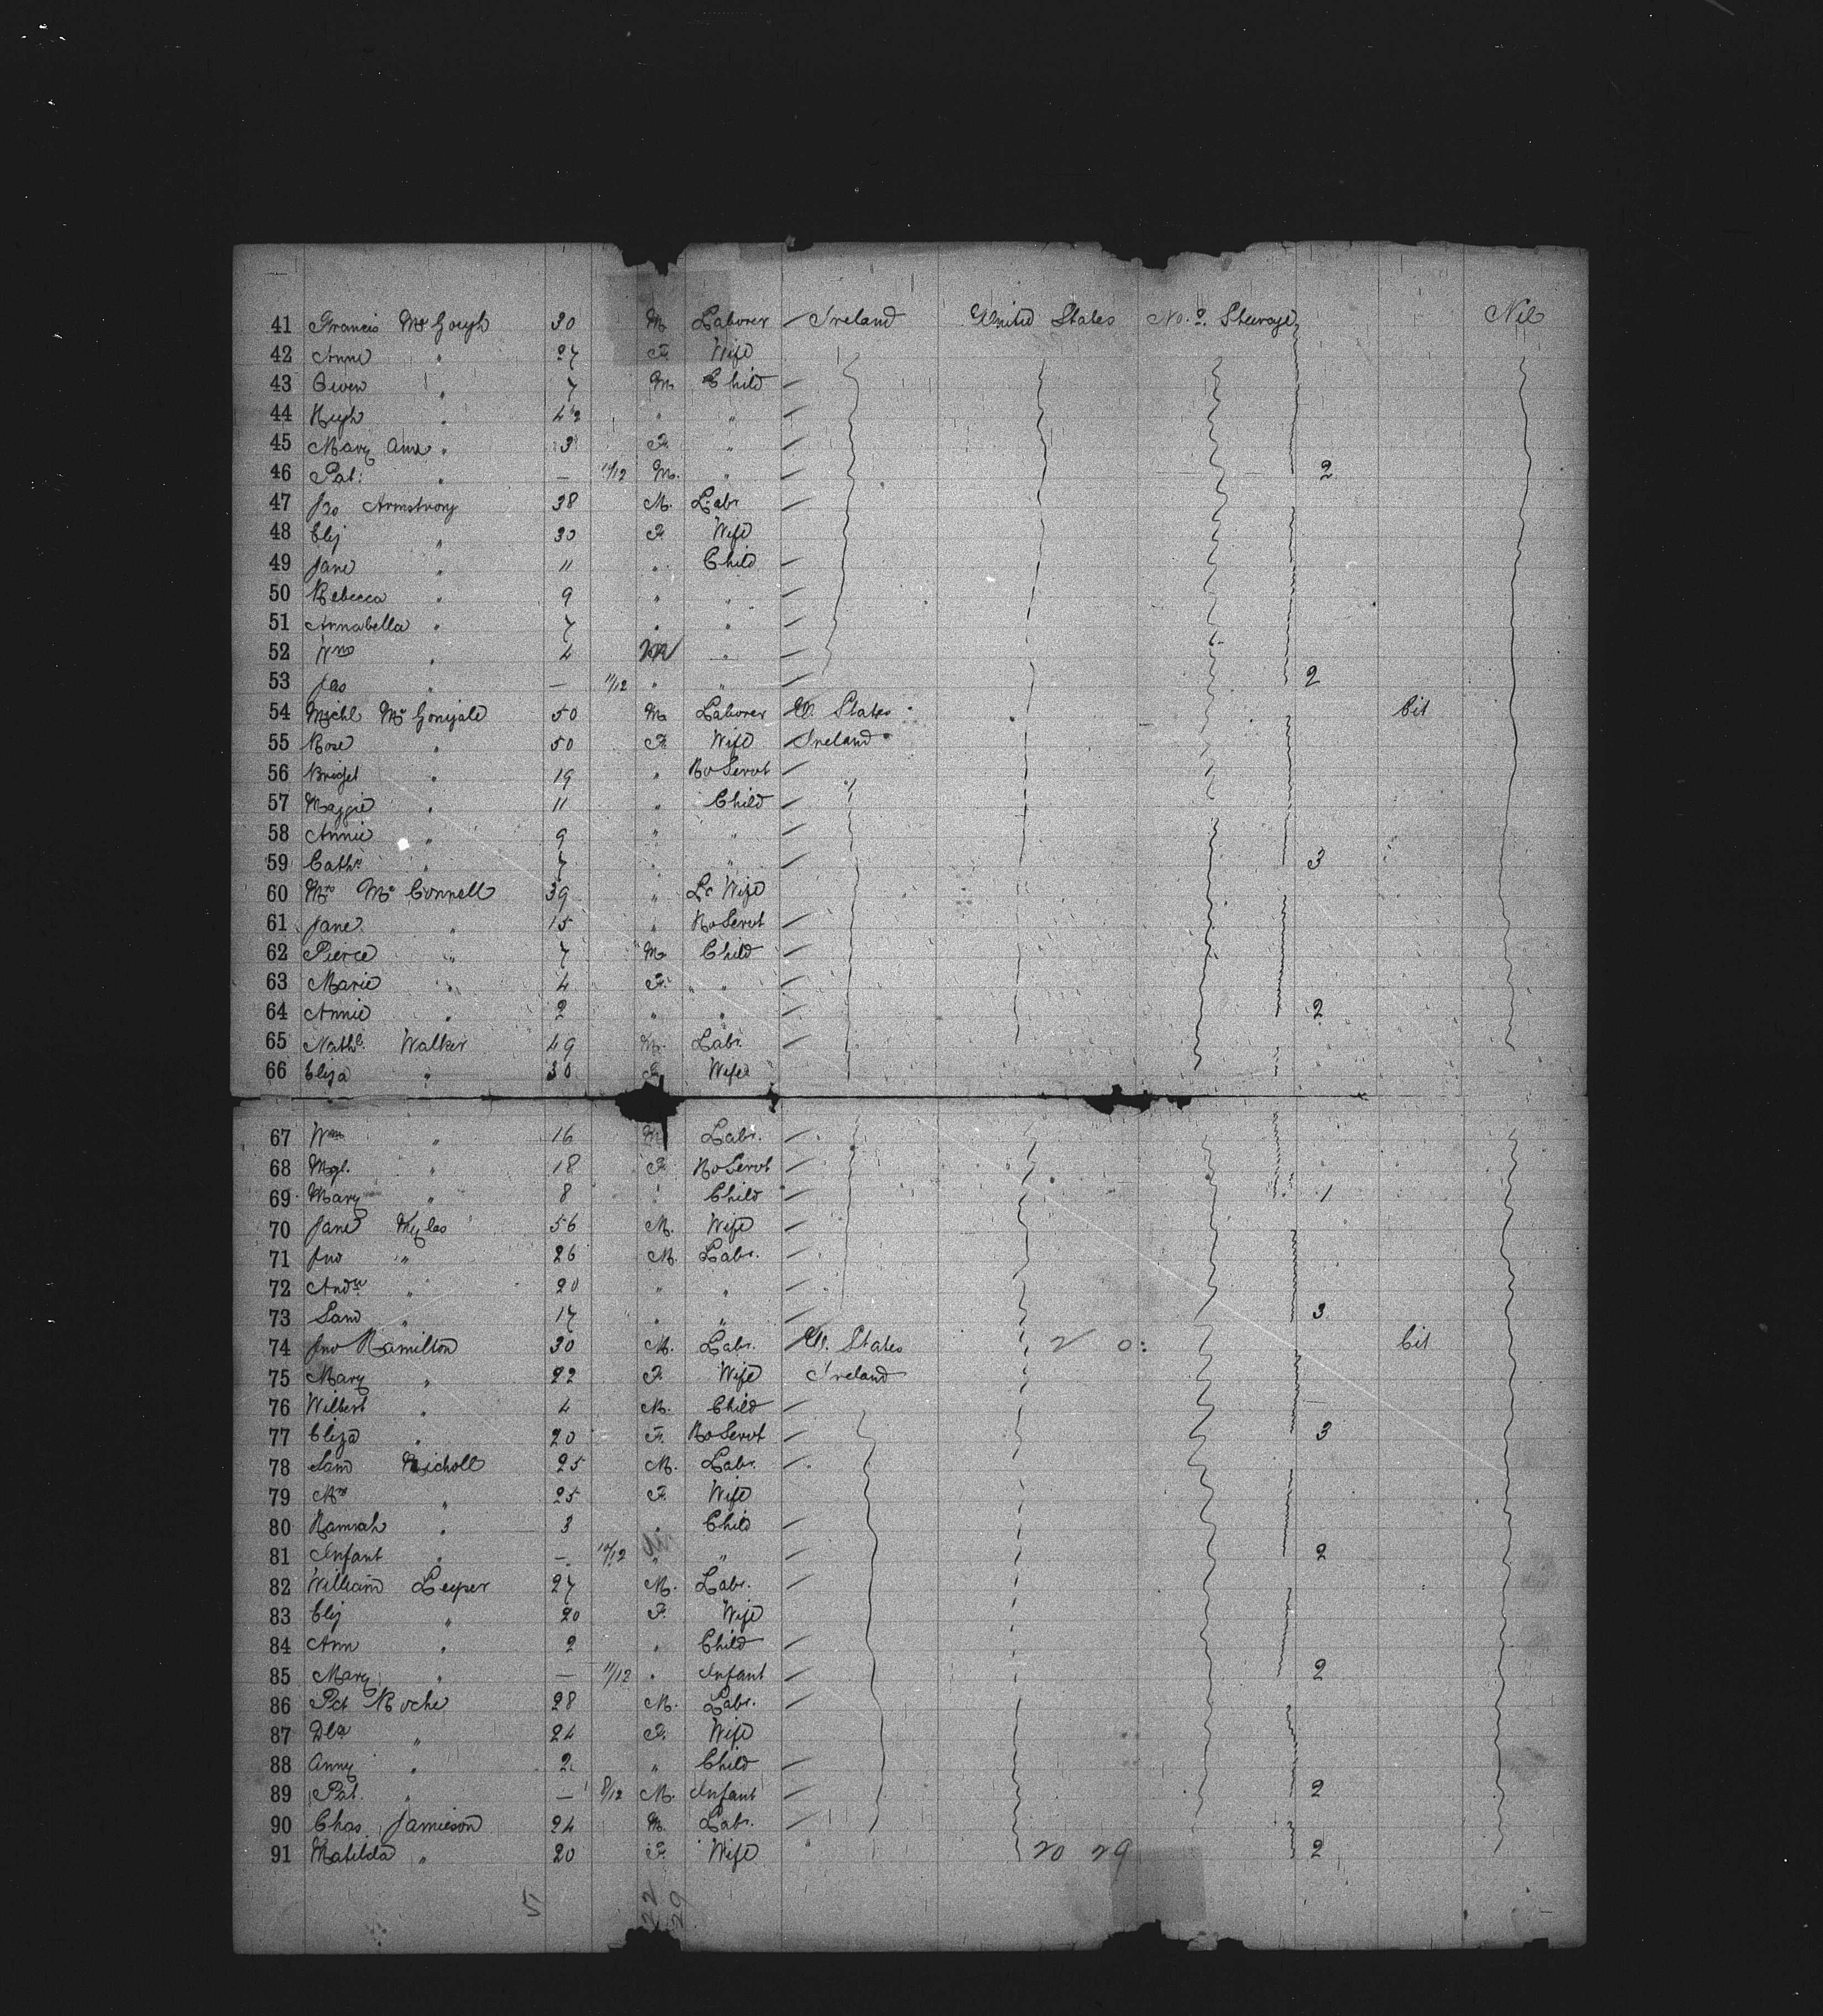 41 Francis McGough 30 M Laborer Ireland United States No. 2. Steerage Nil
42 Anne " 27 F. Wife
43 Owen " 7 M Child
44 Hugh " 4 " "
45 Mary Ann " 3 F. "
46 Pat: " — 11/12 M. " 2
47 Jno Armstrong 38 M. Labr
48 Eliz " 30 F Wife
49 Jane " 11 " Child
50 Rebecca " 9 " "
51 Annabella " 7 " "
52 Wm " 4 M "
53 Jas " — 11/12 " " 2
54 Michl McGonigale 50 M Laborer U. States Cit
55 Rose " 50 F. Wife Ireland
56 Bridget " 19 " Ho Servt
57 Maggie " 11 " Child
58 Annie " 9 " "
59 Cathe " 7 " " 3
60 Mrs McConnell 39 " Lc Wife
61 Jane " 15 " Ho Servt
62 Pierce " 7 M Child
63 Marie " 4 F. " "
64 Annie " 2 " " 2
65 Nathl. Walker 49 M. Labr.
66 Eliza " 30 F Wife
67 Wm " 16 M Labr.
68 Mgt. " 18 F. Ho Servt
69 Mary " 8 " Child 1
70 Jane Kyles 56 M. Wife
71 Jno " 26 M. Labr.
72 Andw " 20 " "
73 Sam " 17 " " 3
74 Jno Hamilton 30 M. Labr. U. States 2 0: Cit
75 Mary " 22 F. Wife Ireland
76 Wilbert " 4 M. Child
77 Eliza " 20 F. Ho Servt 3
78 Sam Nicholl 25 M. Labr.
79 Mrs " 25 F. Wife
80 Hannah " 3 " Child
81 Infant " — 10/12 " " 2
82 William Leeper 27 M. Labr.
83 Eliz " 20 F. Wife
84 Ann " 2 " Child
85 Mary " — 11/12 " Infant 2
86 Pat Roche 28 M. Labr.
87 " 24 F. Wife
88 Anny " 2 " Child
89 Pat. " — 8/12 M. Infant 2
90 Chas Jamieson 24 M. Labr.
91 Matilda " 20 F. Wife 20 29 2
5 22 29